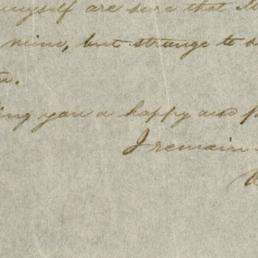 myself are sure that
mine, but strange to s
you a happy and p
I remain